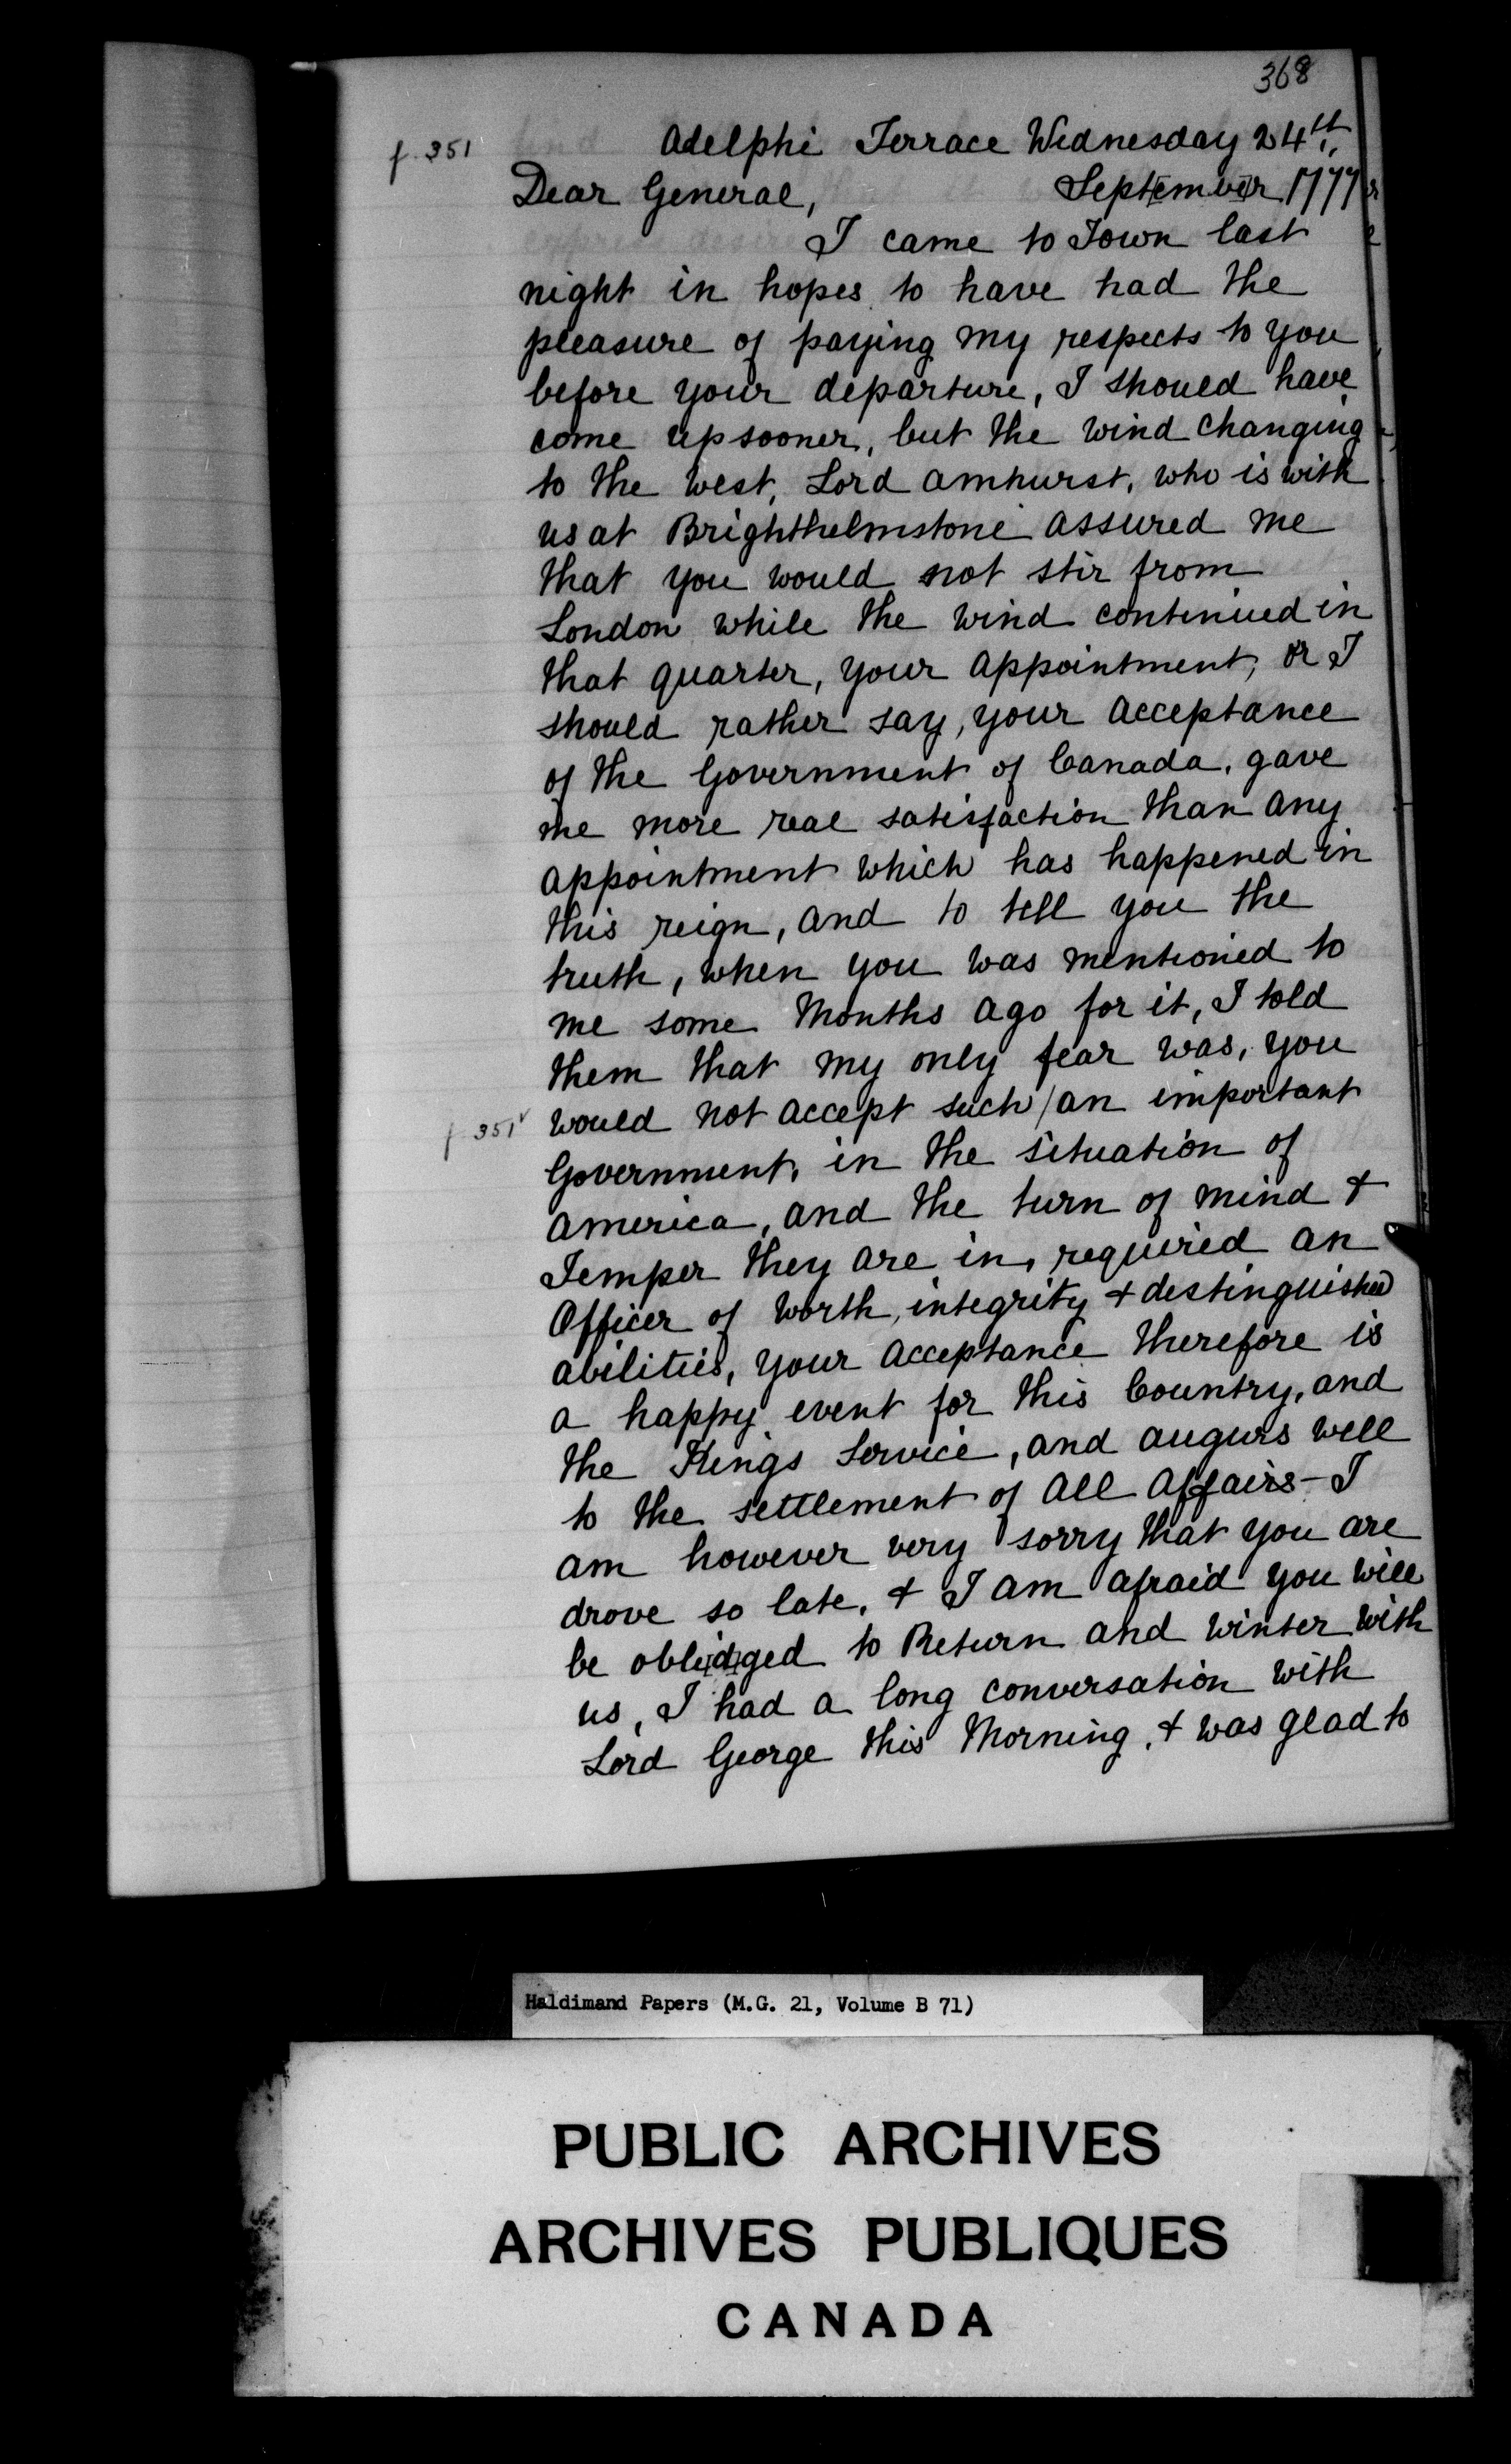 368
f. 351
Adelphi Terrace Wednesday 24th,
Dear General, September 1777
I came to Town last
night in hopes to have had the
pleasure of paying my respects to you
before your departure, I should have
come up sooner, but the wind changing
to the west, Lord Amhurst, who is with
us at Brighthelmstone assured me
that you would not stir from
London while the wind continued in
that quarter, your appointment, or I
should rather say, your acceptance
of the Government of Canada, gave
me more real satisfaction than any
appointment which has happened in
this reign, and to tell you the
truth, when you was mentioned to
me some Months ago for it, I told
them that my only fear was, you
f. 351v would not accept such/an important
Government, in the situation of
America, and the turn of mind &
Temper they are in, required an
Officer of worth, integrity & destinguished
abilities, your acceptance therefore is
a happy event for this Country, and
the Kings Service, and augurs well
to the settlement of all affairs - I
am however very sorry that you are
drove so late, & I am afraid you will
be oblidged to Return and winter with
us, I had a long conversation with
Lord George this Morning, & was glad to
Haldimand Papers (M.G. 21, Volume B 71)
PUBLIC ARCHIVES
ARCHIVES PUBLIQUES
CANADA